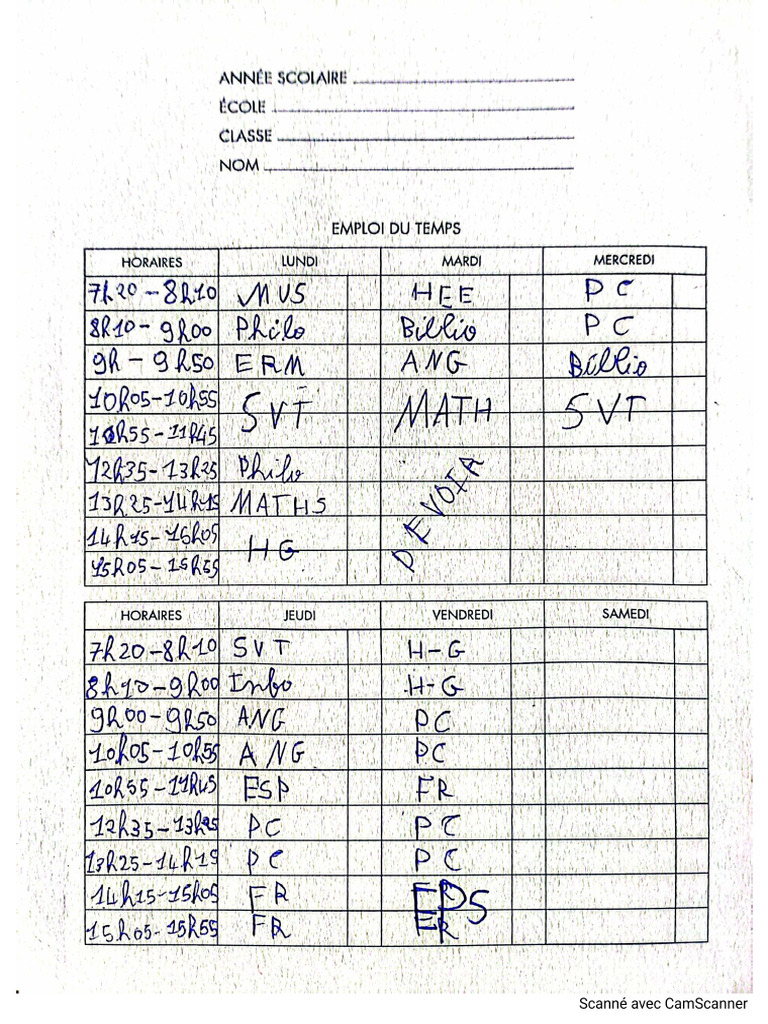 ANNÉE SCOLAIRE
ÉCOLE
CLASSE
NOM
EMPLOI DU TEMPS
HORAIRES LUNDI MARDI MERCREDI
7h20-8h10 MUS HEE PC
8h10-9h00 Philo Biblio PC
9h-9h50 ERM ANG Biblio
10h05-10h55 SVT MATH SVT
10h55-11h45
12h35-13h25 Philo DEVOIR
13h25-14h15 MATHS
14h15-15h05 HG
15h05-15h55
HORAIRES JEUDI VENDREDI SAMEDI
7h20-8h10 SVT H-G
8h10-9h00 Info H-G
9h00-9h50 ANG PC
10h05-10h55 ANG PC
10h55-11h45 ESP FR
12h35-13h25 PC PC
13h25-14h15 PC PC
14h15-15h05 FR EPS
15h05-15h55 FR
Scanné avec CamScanner